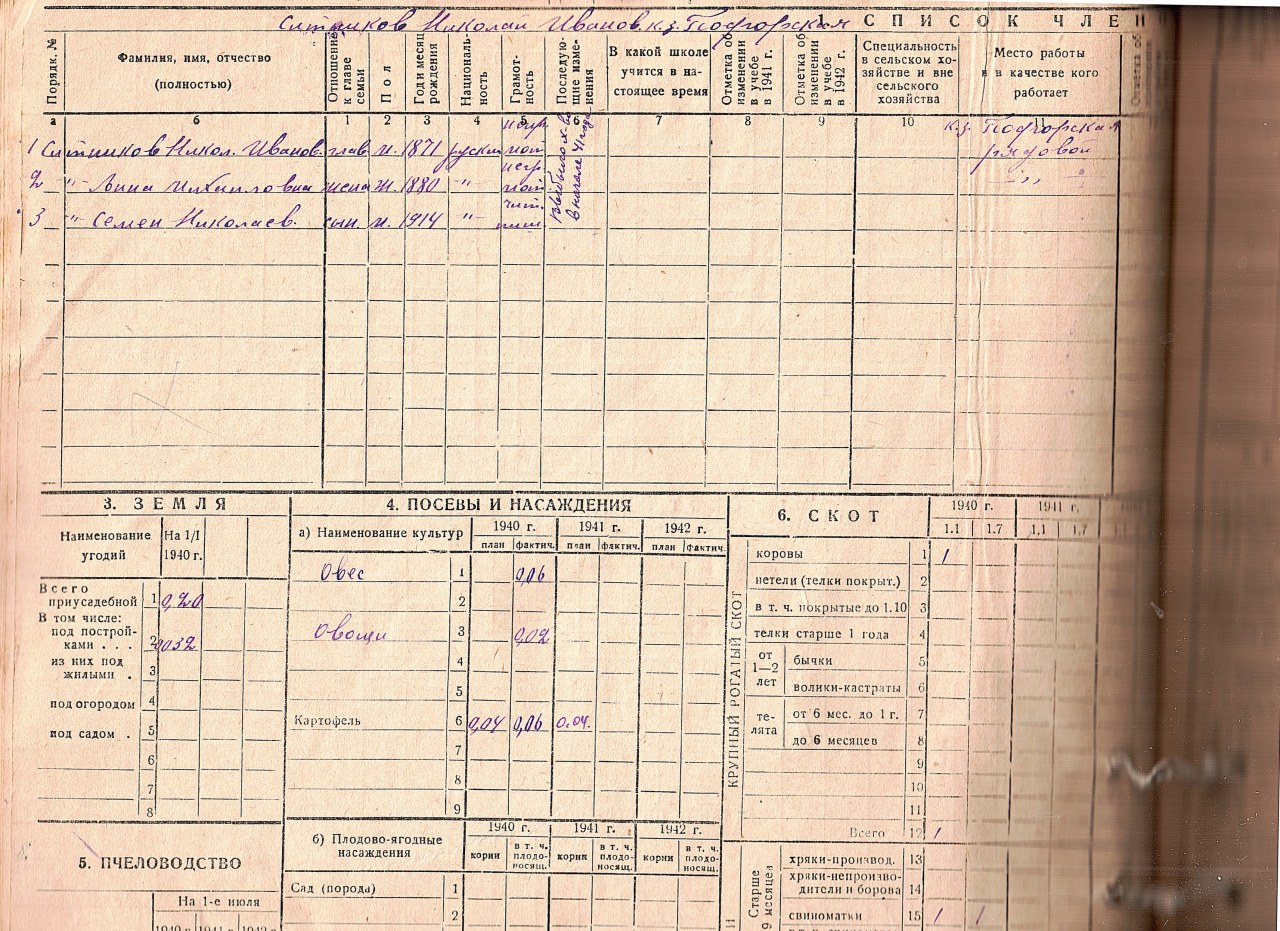 Ситников Николай Иванов. к.з. Подгорская
1. СПИСОК ЧЛЕН
Порядк. №
Фамилия, имя, отчество (полностью)
Отношение к главе семьи
Пол
Год и месяц рождения
Националь-ность
Грамот-ность
Последую-щие изме-нения
В какой школе учится в на-стоящее время
Отметка об изменении в учебе в 1941 г.
Отметка об изменении в учебе в 1942 г.
Специальность в сельском хо-зяйстве и вне сельского хозяйства
Место работы и в качестве кого работает
а б 1 2 3 4 5 6 7 8 9 10 11
1 Ситников Никол. Иванов. глав м. 1871 руский негр. к.з. Подгорская рядовой
2 -"- Анна Михайловна жена ж. 1880 -"- негр. -"-
3 -"- Семен Николаев. сын. м. 1914 -"-
в начале 41 года
3. ЗЕМЛЯ
Наименование угодий На 1/I 1940 г.
Всего приусадебной 1 0,20
В том числе:
под построй-ками . . . 2 0032
из них под жилыми . 3
под огородом 4
под садом . 5
6
7
8
5. ПЧЕЛОВОДСТВО
На 1-е июля
1940 г. 1941 г. 1942 г.
4. ПОСЕВЫ И НАСАЖДЕНИЯ
а) Наименование культур 1940 г. 1941 г. 1942 г.
план фактич. план фактич. план фактич.
Овес 1 0,06
2
Овощи 3 0,02
4
5
Картофель 6 0,04 0,06 0.04.
7
8
9
б) Плодово-ягодные насаждения 1940 г. 1941 г. 1942 г.
корни в т. ч. плодо-носящ. корни в т. ч. плодо-носящ. корни в т. ч. плодо-носящ.
Сад (порода) 1
2
6. СКОТ 1940 г. 1941 г.
1.1 1.7 1.1 1.7
КРУПНЫЙ РОГАТЫЙ СКОТ
коровы 1 1
нетели (телки покрыт.) 2
в т. ч. покрытые до 1.10 3
телки старше 1 года 4
от 1—2 лет
бычки 5
волики-кастраты 6
те-лята
от 6 мес. до 1 г. 7
до 6 месяцев 8
9
10
11
Всего 12 1
Старше 9 месяцев
хряки-производ. 13
хряки-непроизво-дители и борова 14
свиноматки 15 1 1